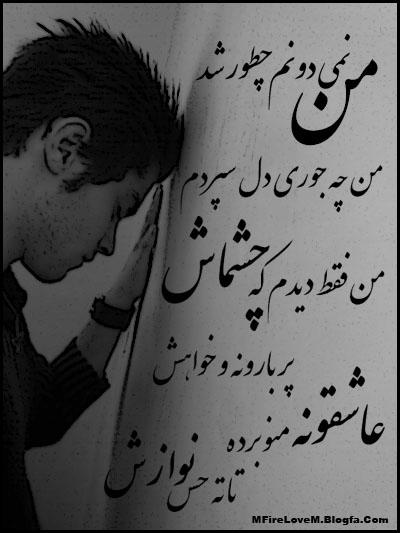 من نمی دونم چطور شد
من چه جوری دل سپردم
من فقط دیدم که چشماش
پر بارونه و خواهش
عاشقونه منو برده
تا ته حس نوازش
MFireLoveM.Blogfa.Com